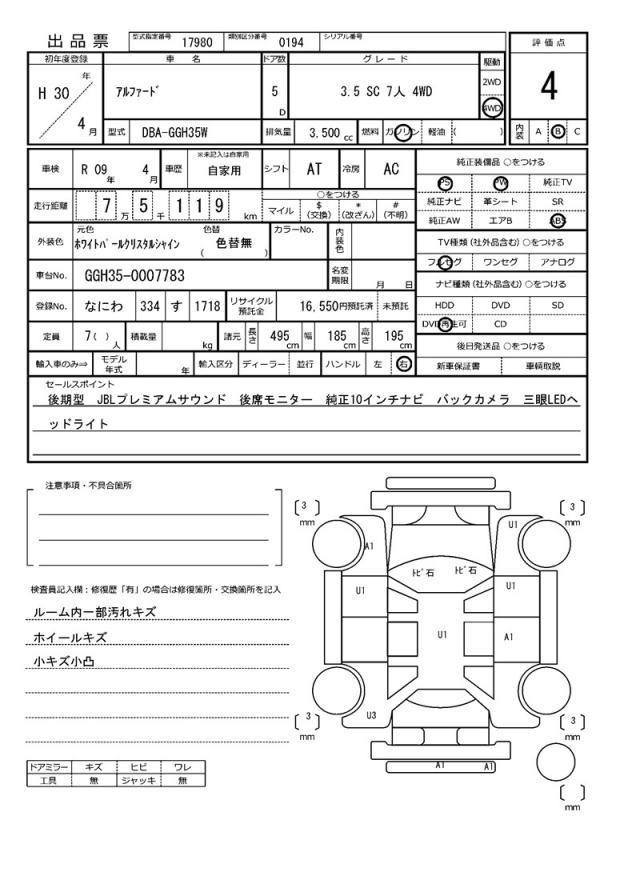 出品票 型式指定番号 17980 類別区分番号 0194 シリアル番号
評価点
4
初年度登録 車名 ドア数 グレード 駆動
H 30 年 4 月
アルファード
5 D
3.5 SC 7人 4WD
2WD
4WD
型式 DBA-GGH35W 排気量 3,500 cc 燃料 ガソリン 軽油 ( )
内装 A B C
車検 R 09 年 4 月 車歴 ※未記入は自家用 自家用 シフト AT 冷房 AC
純正装備品 ○をつける
PS PW 純正TV
純正ナビ 革シート SR
純正AW エアB ABS
走行距離 7 万 5 千 1 1 9 km
○をつける
マイル $ (交換) * (改ざん) # (不明)
外装色 元色 ホワイトパールクリスタルシャイン 色替 ( 色替無 ) カラーNo. 内装色
TV種類 (社外品含む) ○をつける
フルセグ ワンセグ アナログ
車台No. GGH35-0007783 名変期限 月 日
ナビ種類 (社外品含む) ○をつける
HDD DVD SD
DVD再生可 CD
登録No. なにわ 334 す 1718 リサイクル預託金 16,550円預託済 未預託
定員 7( ) 人 積載量 kg 諸元 長さ 495 cm 幅 185 cm 高さ 195 cm
後日発送品 ○をつける
新車保証書 車輌取説
輸入車のみ⇒ モデル年式 年 輸入区分 ディーラー 並行 ハンドル 左 右
セールスポイント
後期型 JBLプレミアムサウンド 後席モニター 純正10インチナビ バックカメラ 三眼LEDヘ
ッドライト
注意事項・不具合箇所
検査員記入欄：修復歴「有」の場合は修復箇所・交換箇所を記入
ルーム内一部汚れキズ
ホイールキズ
小キズ小凸
ドアミラー キズ ヒビ ワレ
工具 無 ジャッキ 無
[ 3 ] mm
[ 3 ] mm
U1
A1
トビ石 トビ石
U1 U1
U1 A1
U3
[ 3 ] mm
[ 3 ] mm
A1 A1
[ ] mm